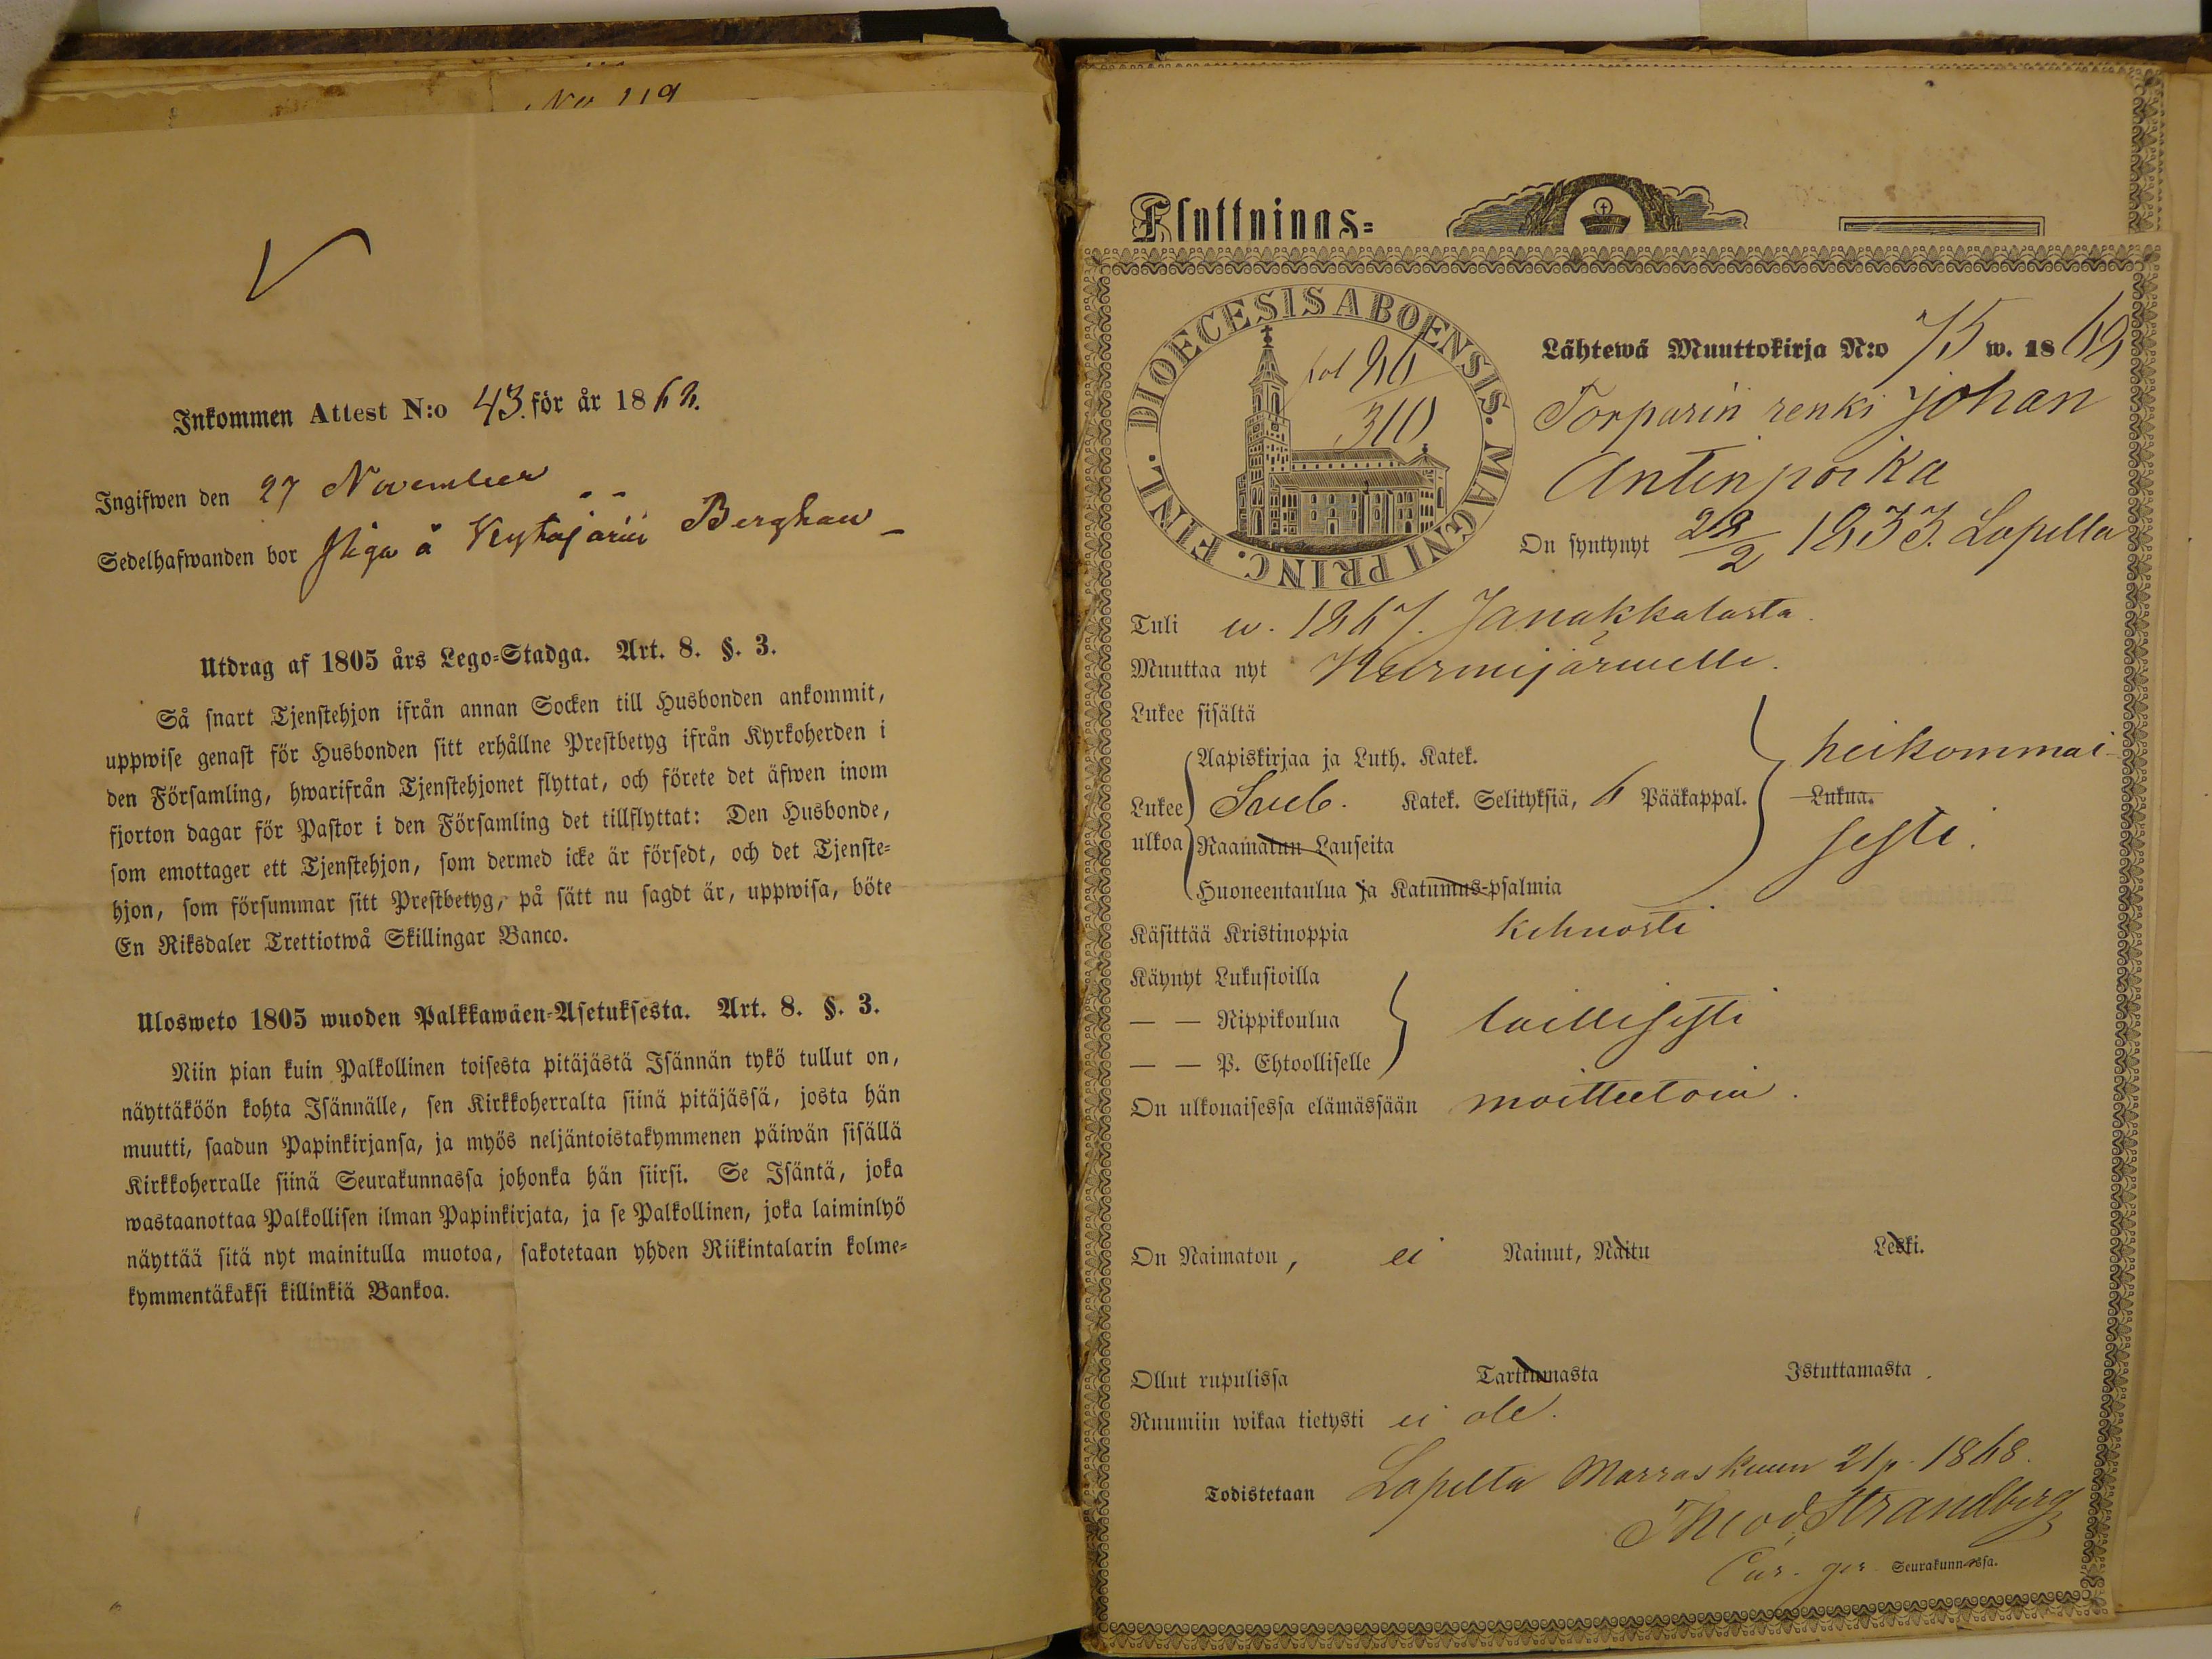 No 219
Inkommen Attest N:o 43. för år 1862.
Ingifwen den 27 November
Sedelhafwanden bor piga å Kytäjärvi Bergham
Utdrag af 1805 års Lego-Stadga. Art. 8. §. 3.
Så snart Tjenstehjon ifrån annan Socken till Husbonden ankommit,
uppwise genast för Husbonden sitt erhållne Prestbetyg ifrån Kyrkoherden i
den Församling, hwarifrån Tjenstehjonet flyttat, och förete det äfwen inom
fjorton dagar för Pastor i den Församling det tillflyttat: Den Husbonde,
som emottager ett Tjenstehjon, som dermed icke är försedt, och det Tjenste-
hjon, som försummar sitt Prestbetyg, på sätt nu sagdt är, uppwisa, böte
En Riksdaler Trettiotwå Skillingar Banco.
Ulosweto 1805 wuoden Palkkawäen-Asetuksesta. Art. 8. §. 3.
Niin pian kuin Palkollinen toisesta pitäjästä Isännän tykö tullut on,
näyttäköön kohta Isännälle, sen Kirkkoherralta siinä pitäjässä, josta hän
muutti, saadun Papinkirjansa, ja myös neljäntoistakymmenen päiwän sisällä
Kirkkoherralle siinä Seurakunnassa johonka hän siirsi. Se Isäntä, joka
wastaanottaa Palkollisen ilman Papinkirjata, ja se Palkollinen, joka laiminlyö
näyttää sitä nyt mainitulla muotoa, sakotetaan yhden Riikintalarin kolme-
kymmentäkaksi killinkiä Bankoa.
Flyttnings-
DIOECESIS ABOENSIS. MAGNI PRINC. FINL.
310
Lähtewä Muuttokirja N:o 75 w. 1869
Torparin renki Johan
Antinpoika
On syntynyt 28/2 1833. Lopella
Tuli w. 1867. Janakkalasta.
Muuttaa nyt Nurmijärwelle.
Lukee sisältä
Aapiskirjaa ja Luth. Katek. heikommai-
Lukee ulkoa Sveb. Katek. Selityksiä, 6 Pääkappal. Lukua.
Raamatun Lauseita sesti.
Huoneentaulua ja Katumus-psalmia
Käsittää Kristinoppia kehnosti
Käynyt Lukusioilla
— — Rippikoulua laillisesti
— — P. Ehtoolliselle
On ulkonaisessa elämässään moitteetoin.
On Naimaton, ei Nainut, Naitu Leski.
Ollut rupulissa Tarttumasta Istuttamasta.
Ruumiin wikaa tietysti ei ole.
Todistetaan Lopelta Marraskuun 21 p. 1868.
Theod. Strandberg
Cur. ger. Seurakunnassa.